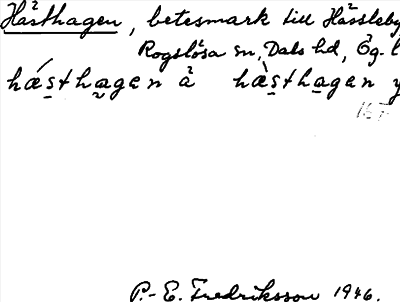 Hästhagen, betesmark till Hässleby
Rogslösa sn, Dals hd, Ög. l
hǽsthagen å hæ̀sthagen y
P.-E. Fredriksson 1946.